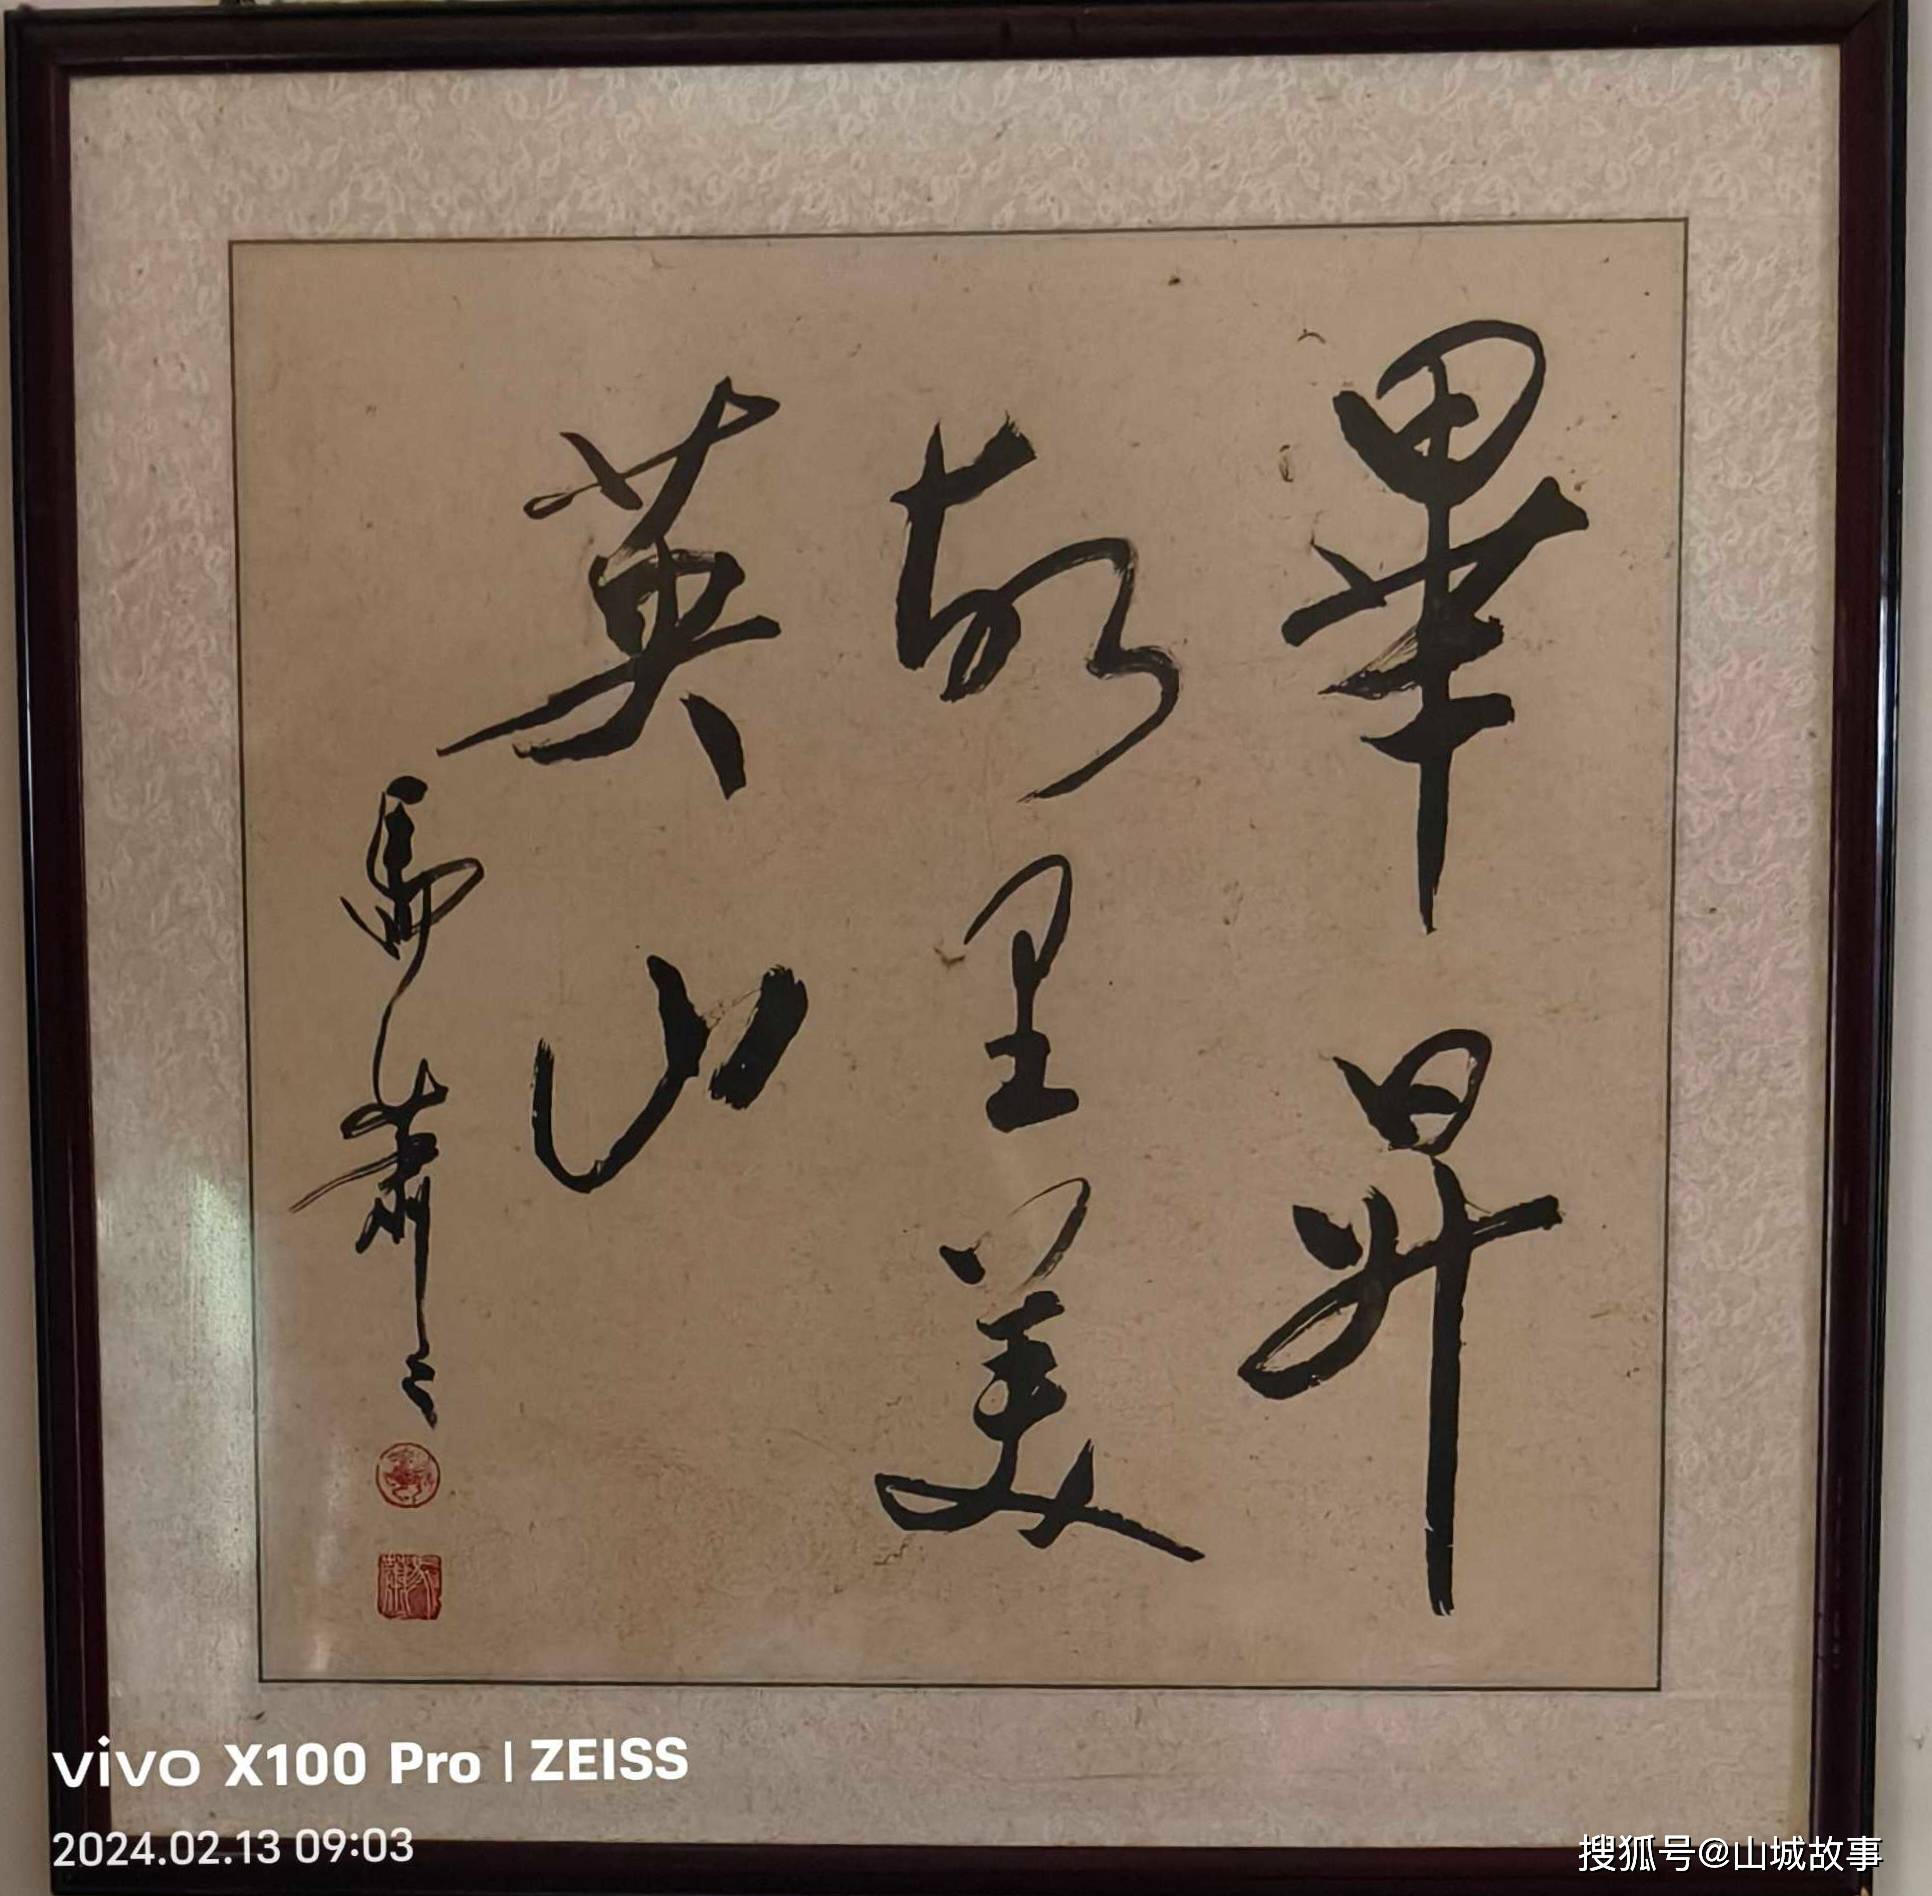 畢昇
故里美
英山
馬蕭蕭
vivo X100 Pro | ZEISS
2024.02.13 09:03
搜狐号@山城故事